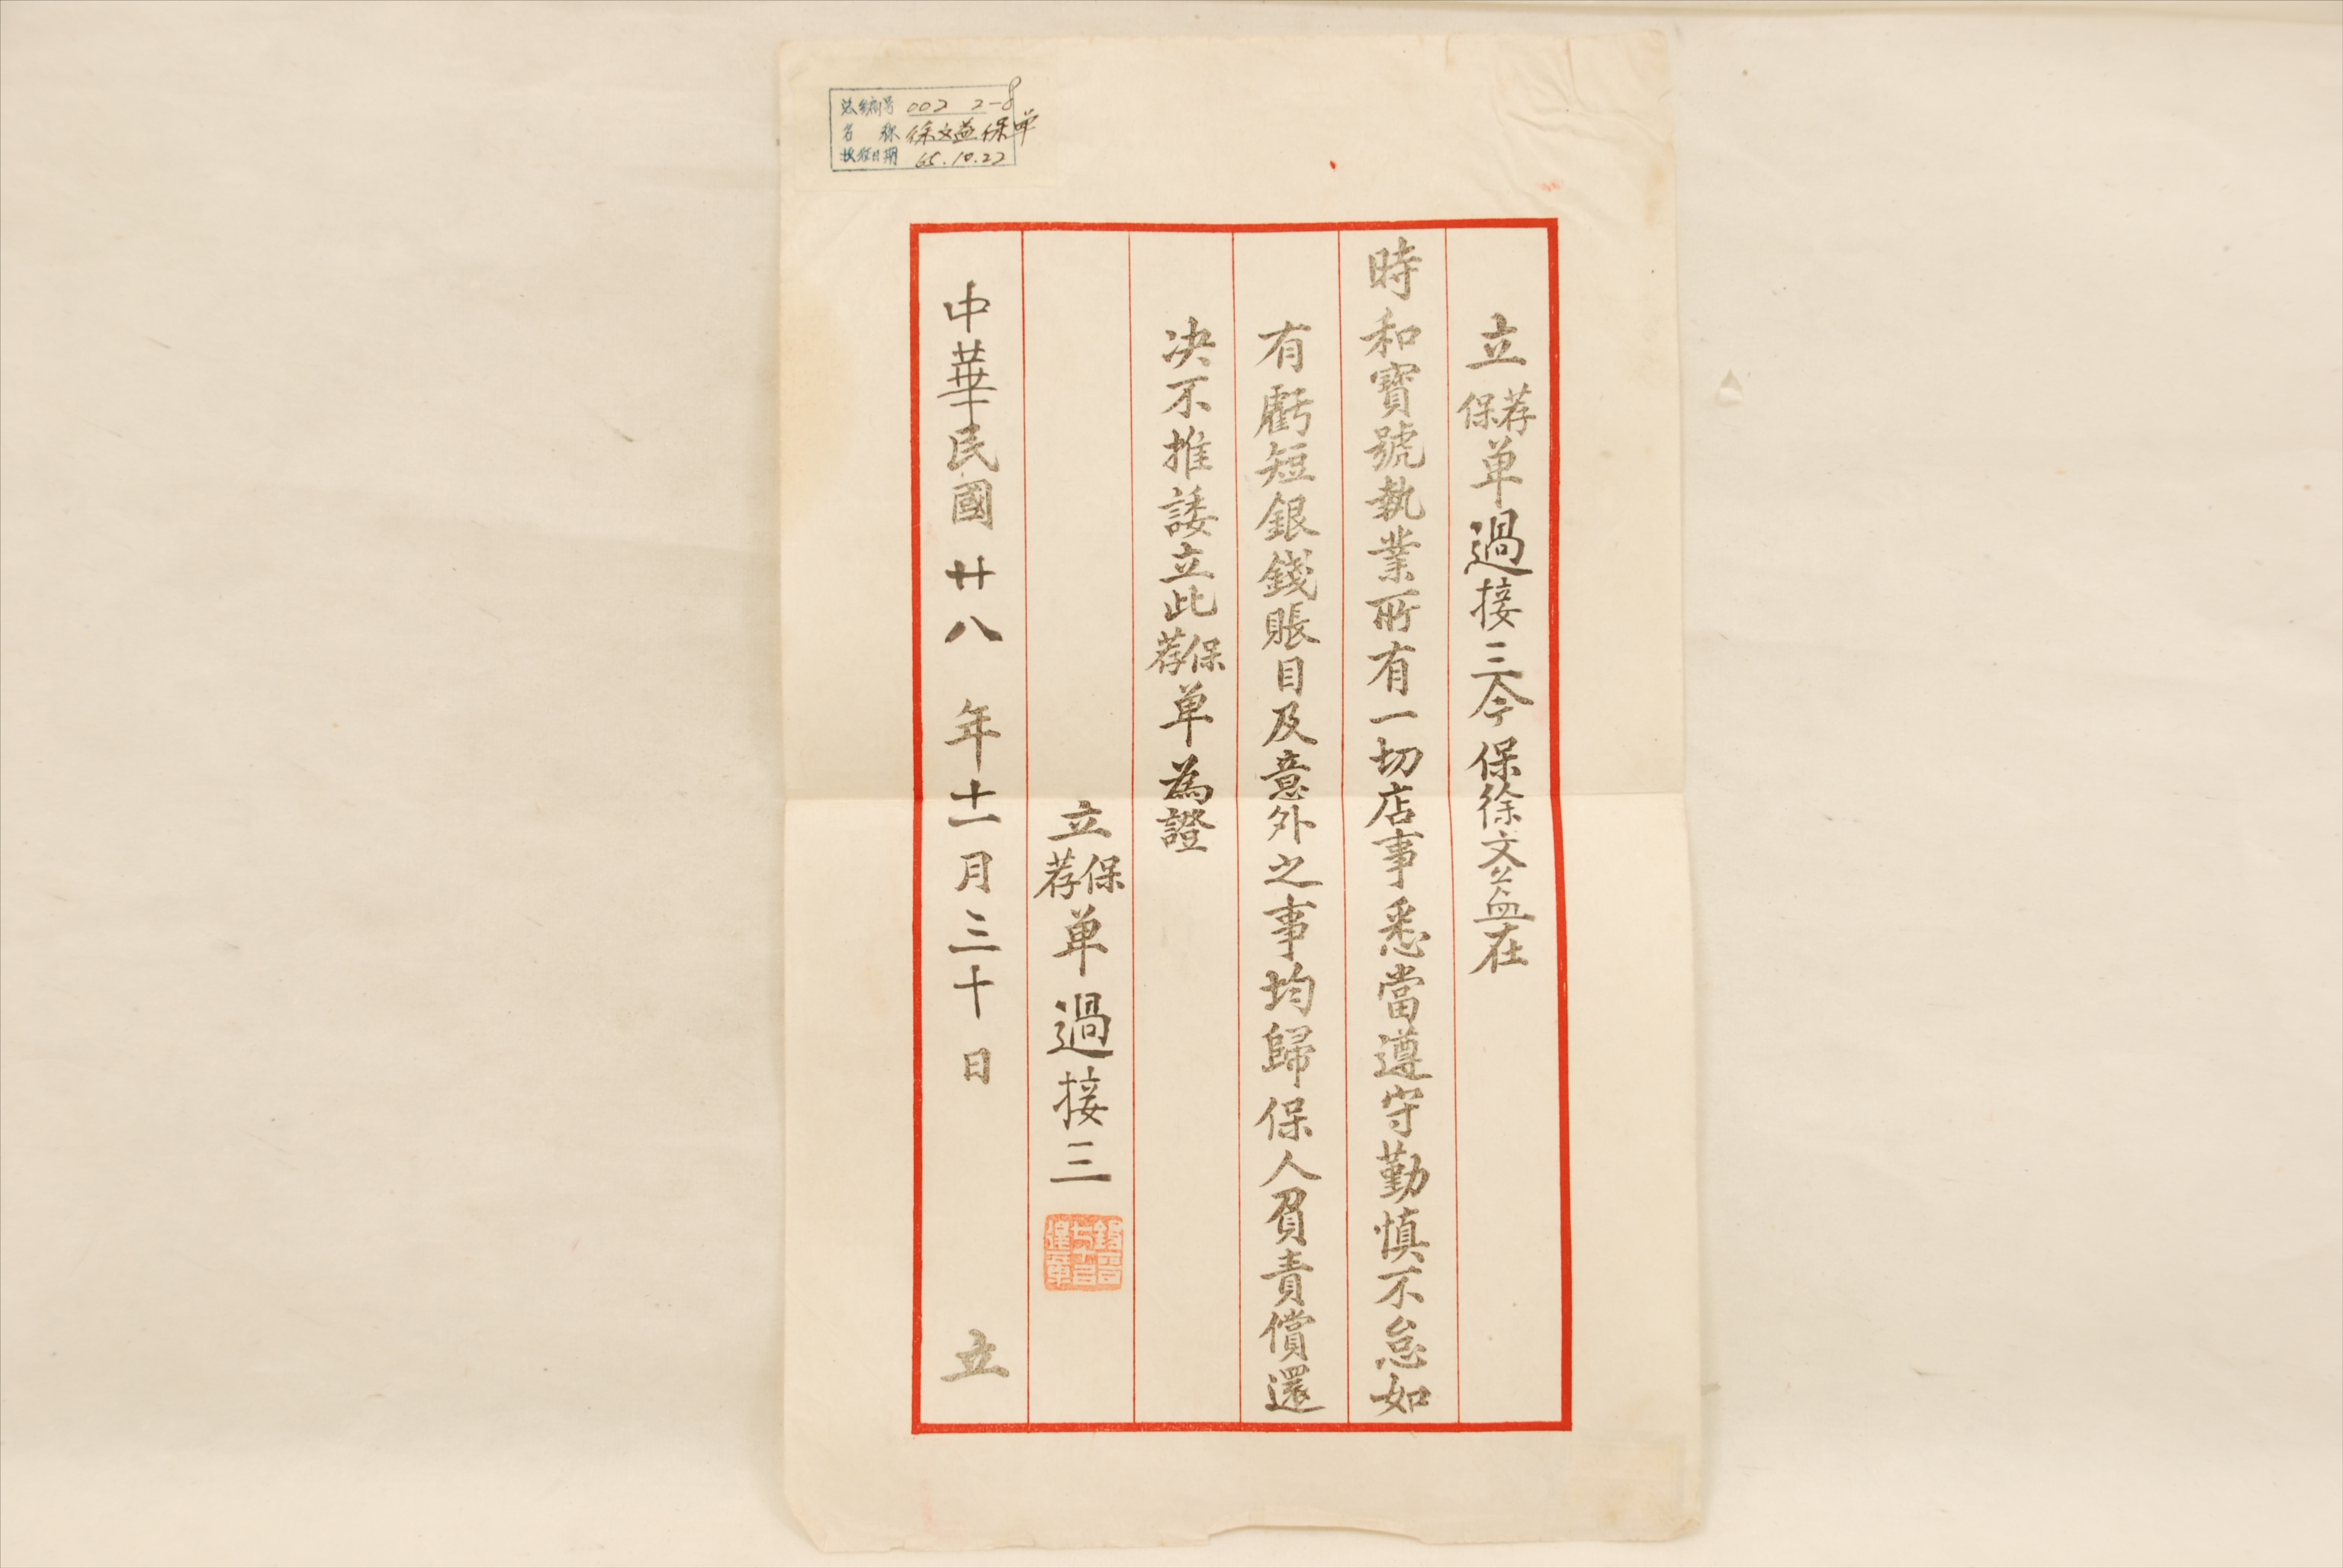 总编号 002 2-8
名称 徐文益保单
收鉴日期 65.10.22
立荐保单過接三今保徐文益在
時和寳號執業所有一切店事悉當遵守勤慎不怠如
有虧短銀錢賬目及意外之事均歸保人負責償還
决不推諉立此保荐单為證
立保荐单過接三
中華民國廿八年十一月三十日立